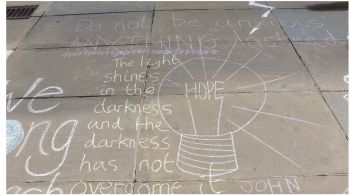 Do not be anxious
ANYTHING Instead
The light
shines
in the
darkness
and the
darkness
has not
overcome it
HOPE
JOHN
ve
ong